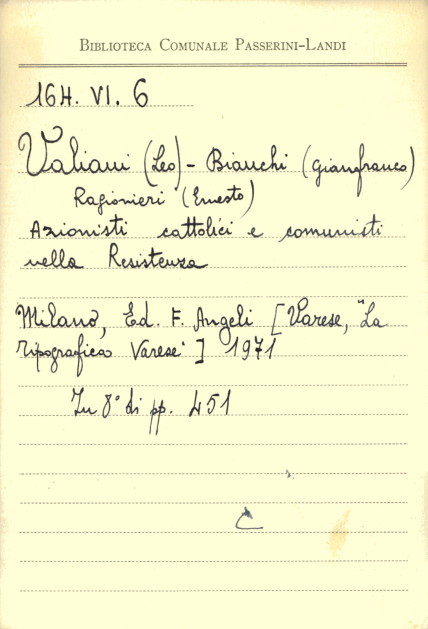 BIBLIOTECA COMUNALE PASSERINI-LANDI
16H. VI. 6
Valiani (Leo) - Bianchi (Gianfranco)
Ragionieri (Ernesto)
Azionisti cattolici e comunisti
nella Resistenza
Milano, Ed. F. Angeli [Varese, "La
Tipografica Varese"] 1971
In 8° di pp. 451
C